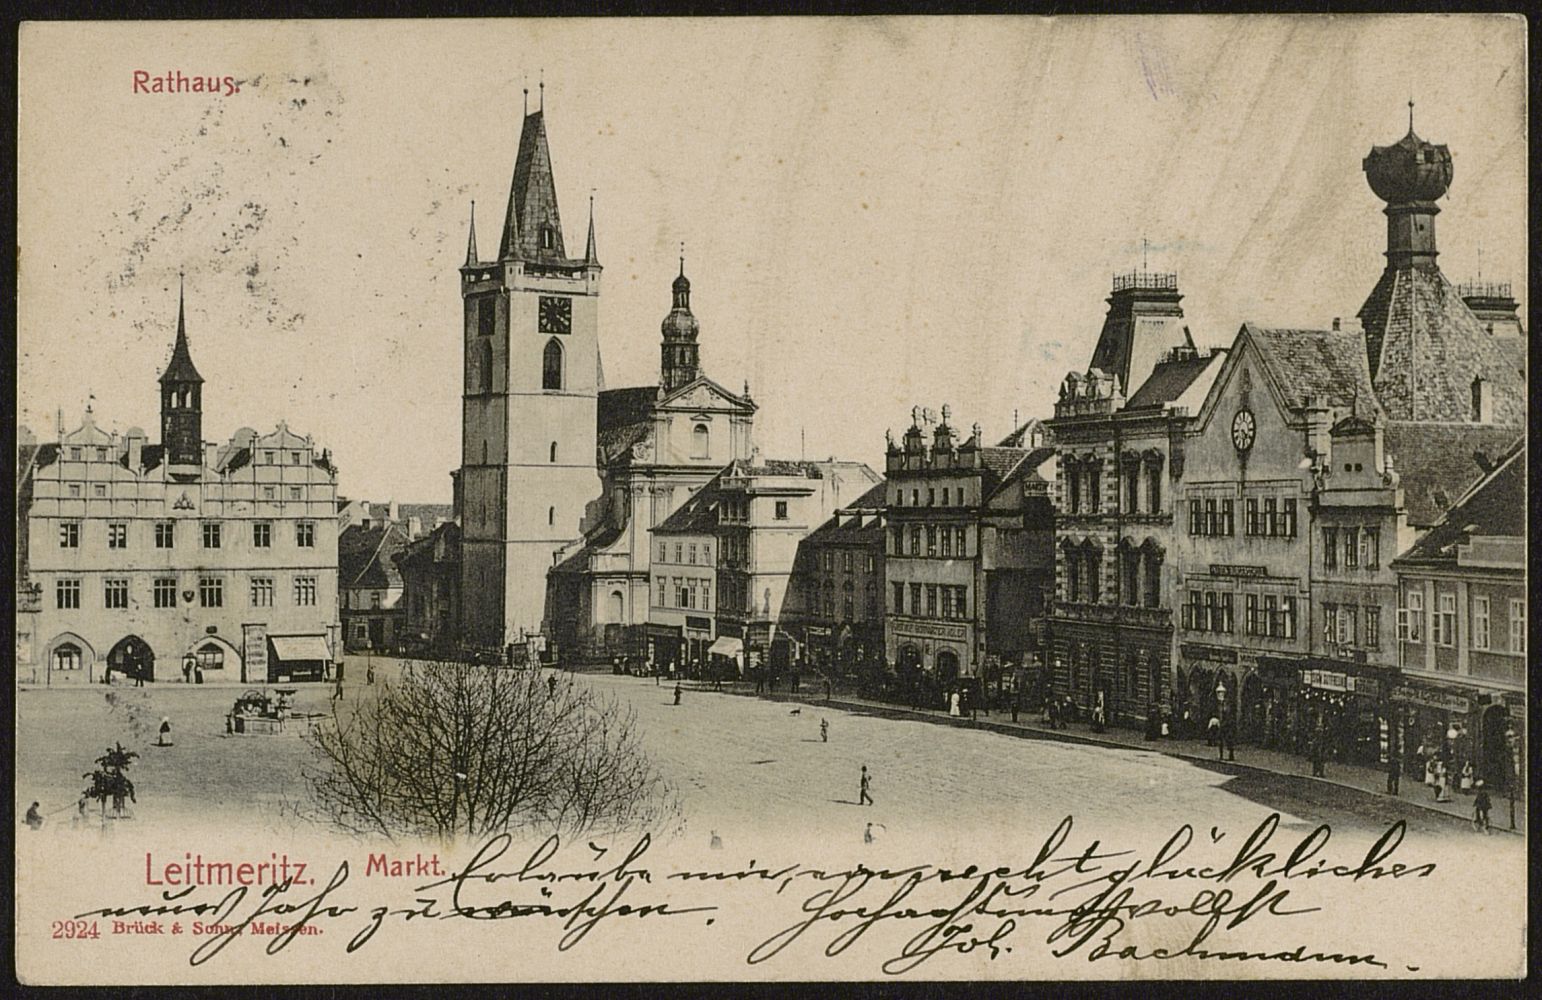 Rathaus.
Leitmeritz. Markt.
2924 Brück & Sohn, Meissen.
Erlaube mir, ein recht glückliches
neues Jahr zu wünschen.
Hochachtungsvollst
Joh. Bachmann.